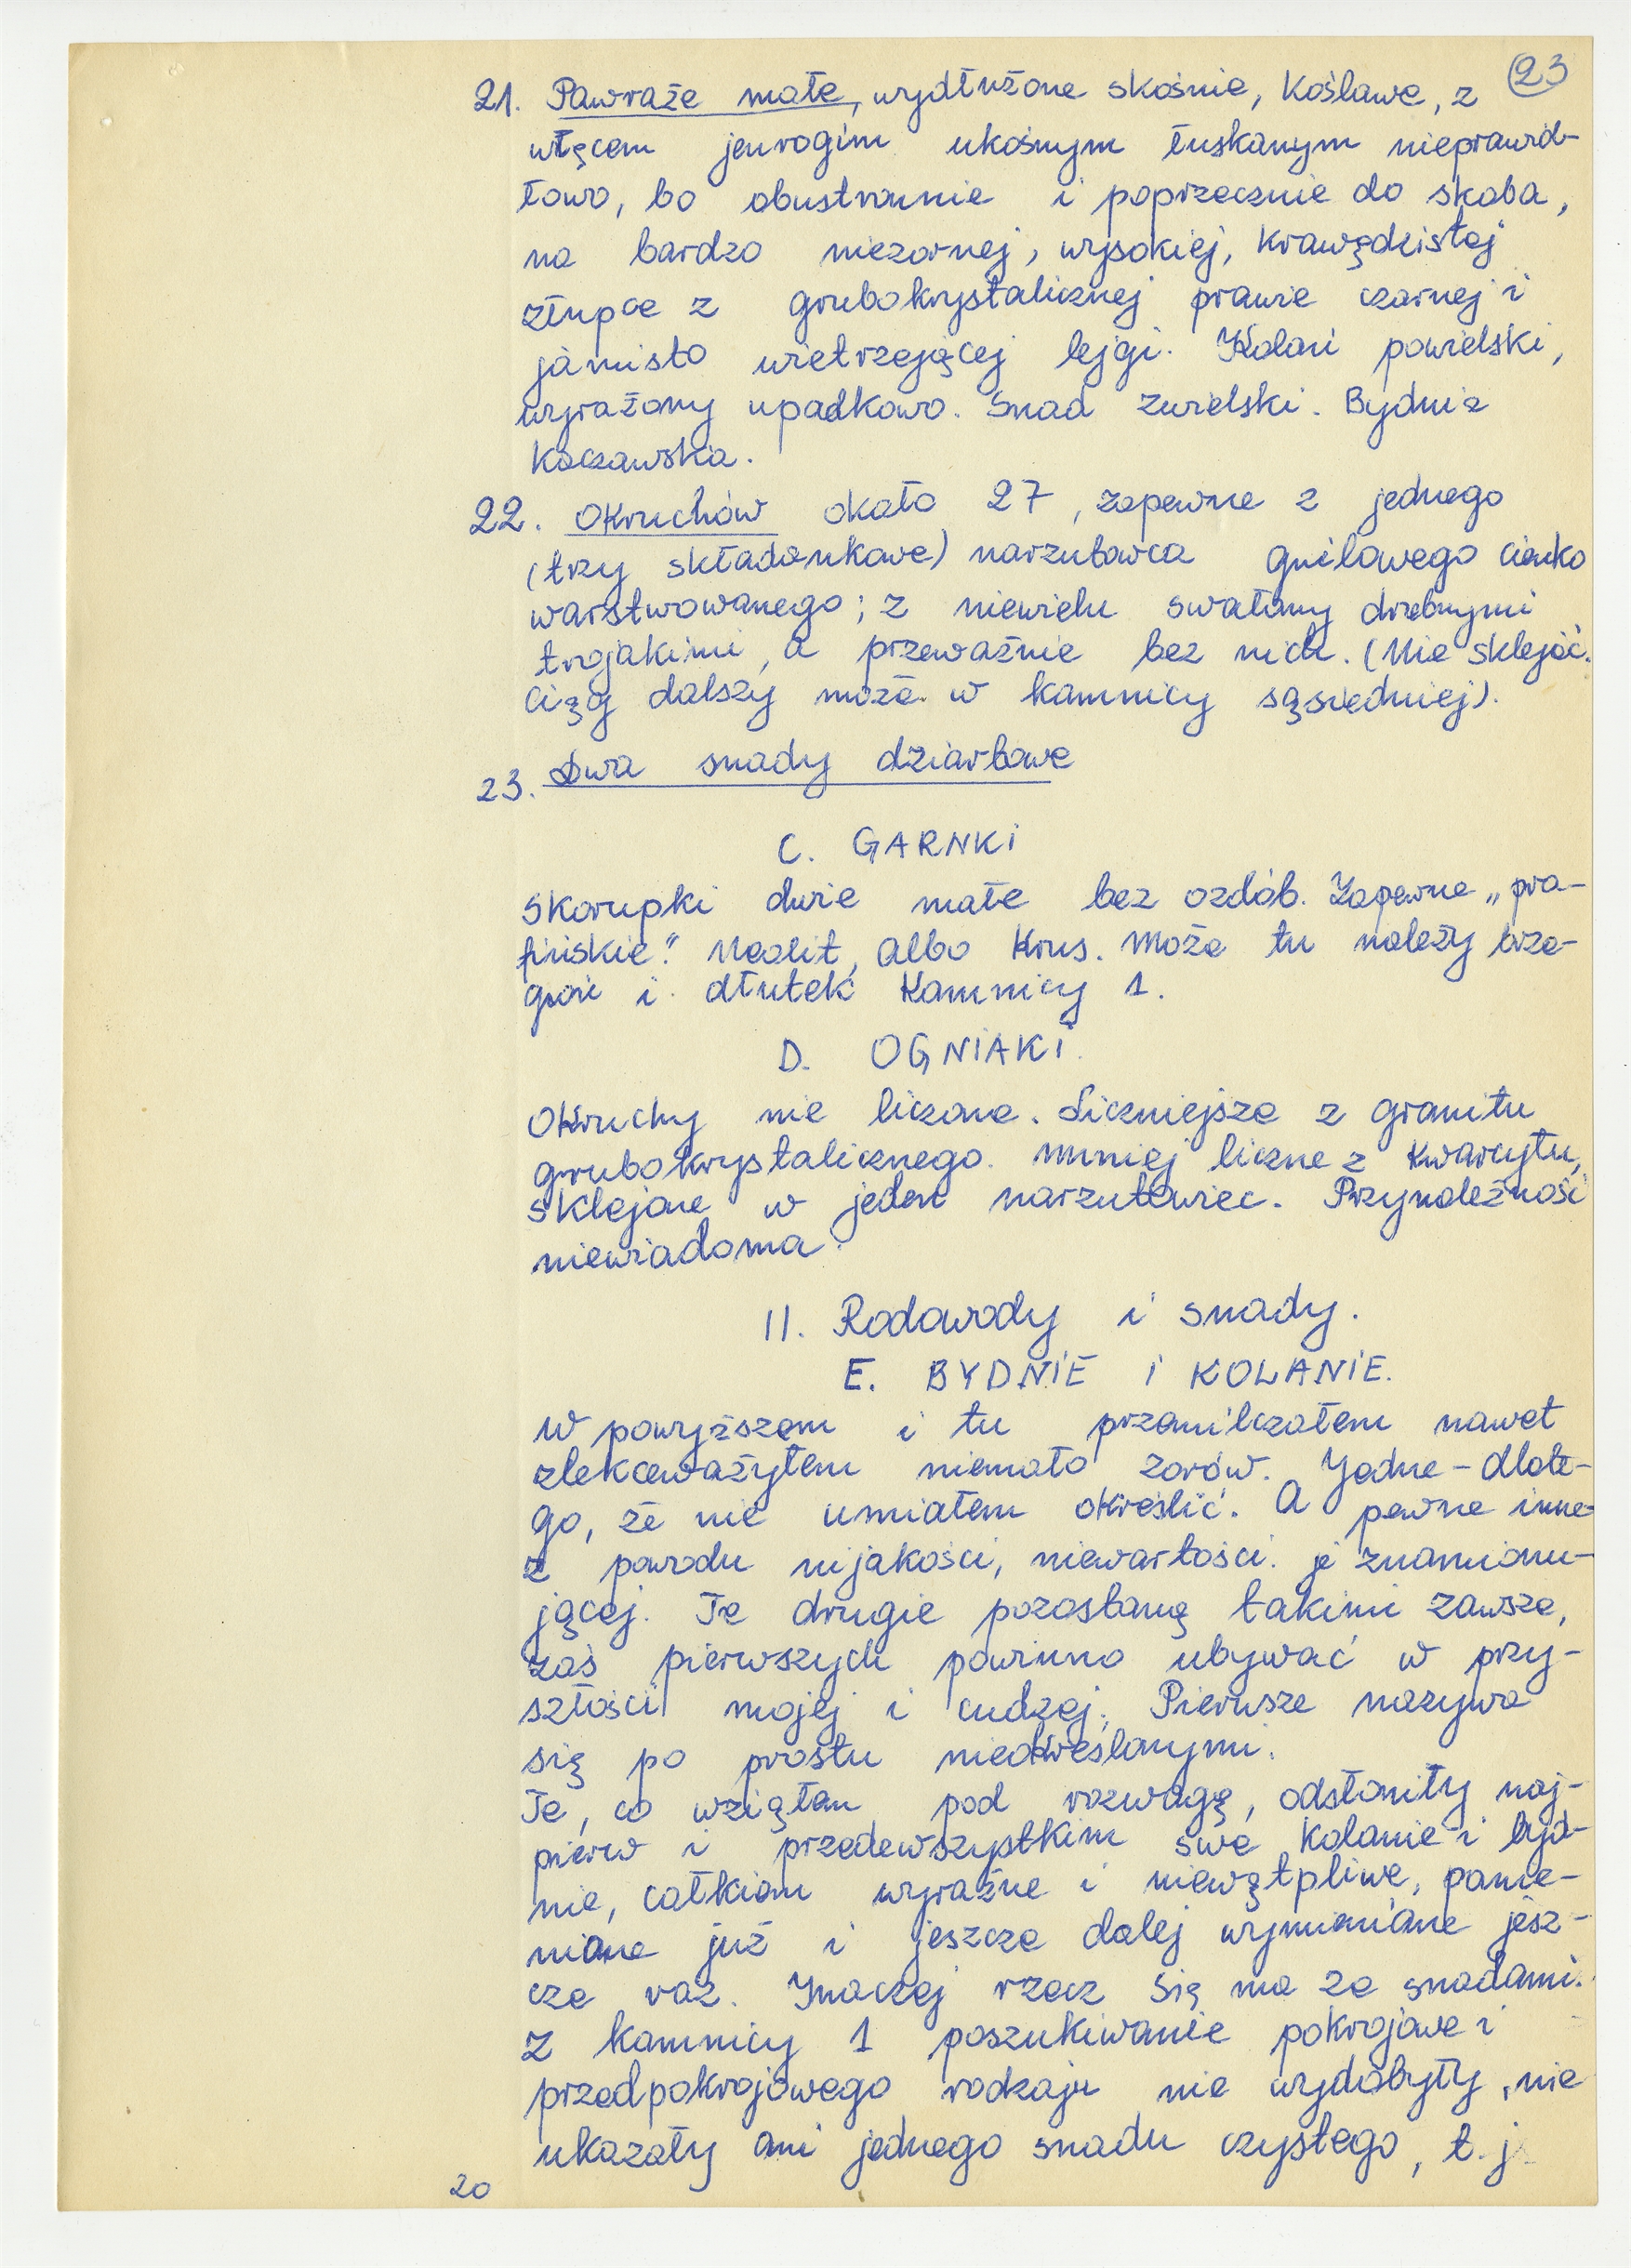 23
21. Pawraże małe, wydłużone skośnie, koślawe, z
włęcem jeurogim ukośnym łuskanym nieprawid-
łowo, bo obustronnie i poprzecznie do skoba,
na bardzo niezornej, wysokiej, krawędzistej
złupce z grubokrystalicznej prawie czarnej i
jamisto wietrzejącej lejgi. Kolań powielski,
wyrażony upadkowo. Snad zurelski. Bydnia
Kaczawska.
22. Okruchów około 27, zapewne z jednego
(trzy składankowe) narzutowca gnilowego cienko
warstwowanego; z niewielu swatimy drebnymi
trojakimi, a przeważnie bez nich. (Nie sklejać.
Ciąg dalszy może w kamnicy sąsiedniej).
23. Dwa snady dziarbowe
C. GARNKI
Skorupki dwie małe bez ozdób. Zapewne „pra-
fińskie". Neolit, albo Krus. Może tu należy brze-
goń i dłutek Kamnicy 1.
D. OGNIAKI.
Okruchy nie liczone. Liczniejsze z granitu
grubokrystalicznego. Mniej liczne z kwarcytu,
sklejone w jeden narzutowiec. Przynależność
niewiadoma.
II. Rodowody i snady.
E. BYDNIE I KOLANIE.
W powyższem i tu przemilczałem nawet
zlekceważyłem niemało zorów. Jedne - dlate-
go, że nie umiałem określić. A pewne inne
z powodu nijakości, niewartości je znamionu-
jącej. Te drugie pozostaną takimi zawsze,
zaś pierwszych powinno ubywać w przy-
szłości mojej i cudzej. Pierwsze nazywa
się po prostu nieokreślonymi.
Te, co wziąłem pod rozwagę, odsłoniły naj-
pierw i przedewszystkim swe kolanie i byd-
nie, całkiem wyraźne i niewątpliwe, pomie-
niane już i jeszcze dalej wymieniane jesz-
cze raz. Inaczej rzecz się ma ze snadami.
Z kamnicy 1 poszukiwanie pokrojowe i
przedpokrojowego rodzaju nie wydobyły, nie
ukazały ani jednego snadu czystego, t.j.
20